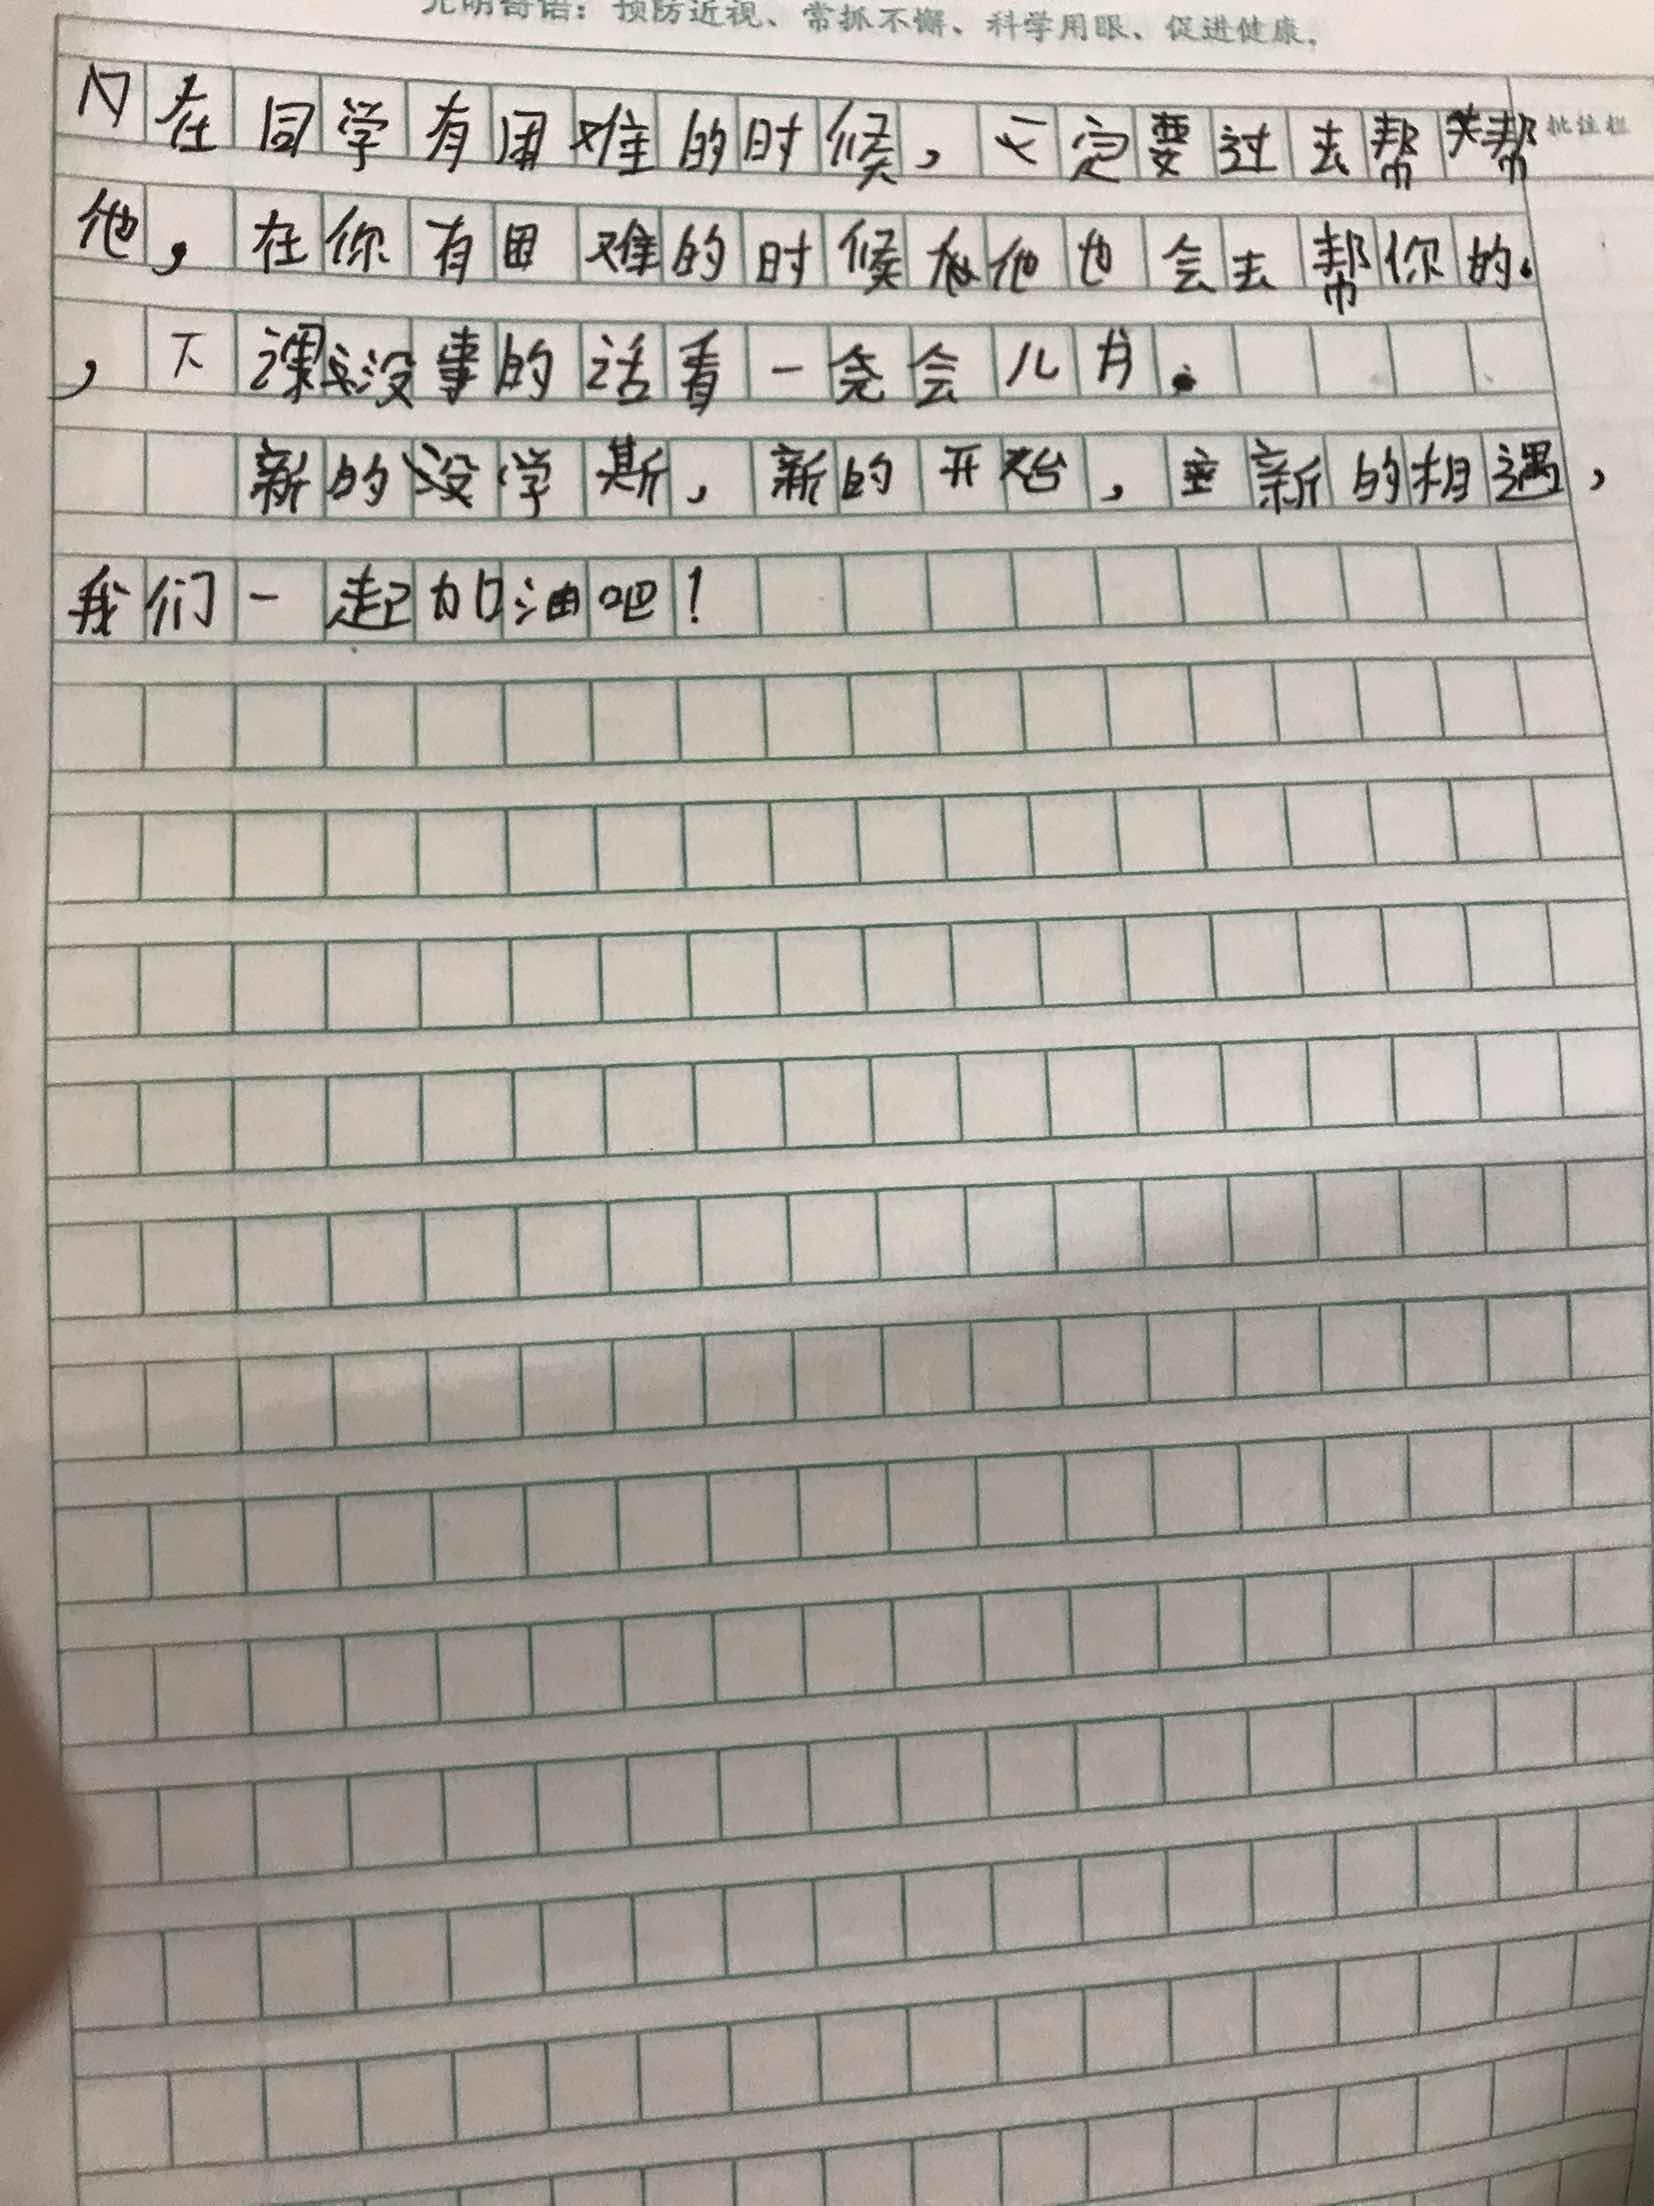 光明寄语：预防近视、常抓不懈、科学用眼、促进健康。
批注栏
闪在同学有困难的时候，一定要过去帮帮
他，在你有困难的时候他也会去帮你的。
，下课没事的话看一会儿书。
新的学期，新的开始，重新的相遇，
我们一起加油吧！